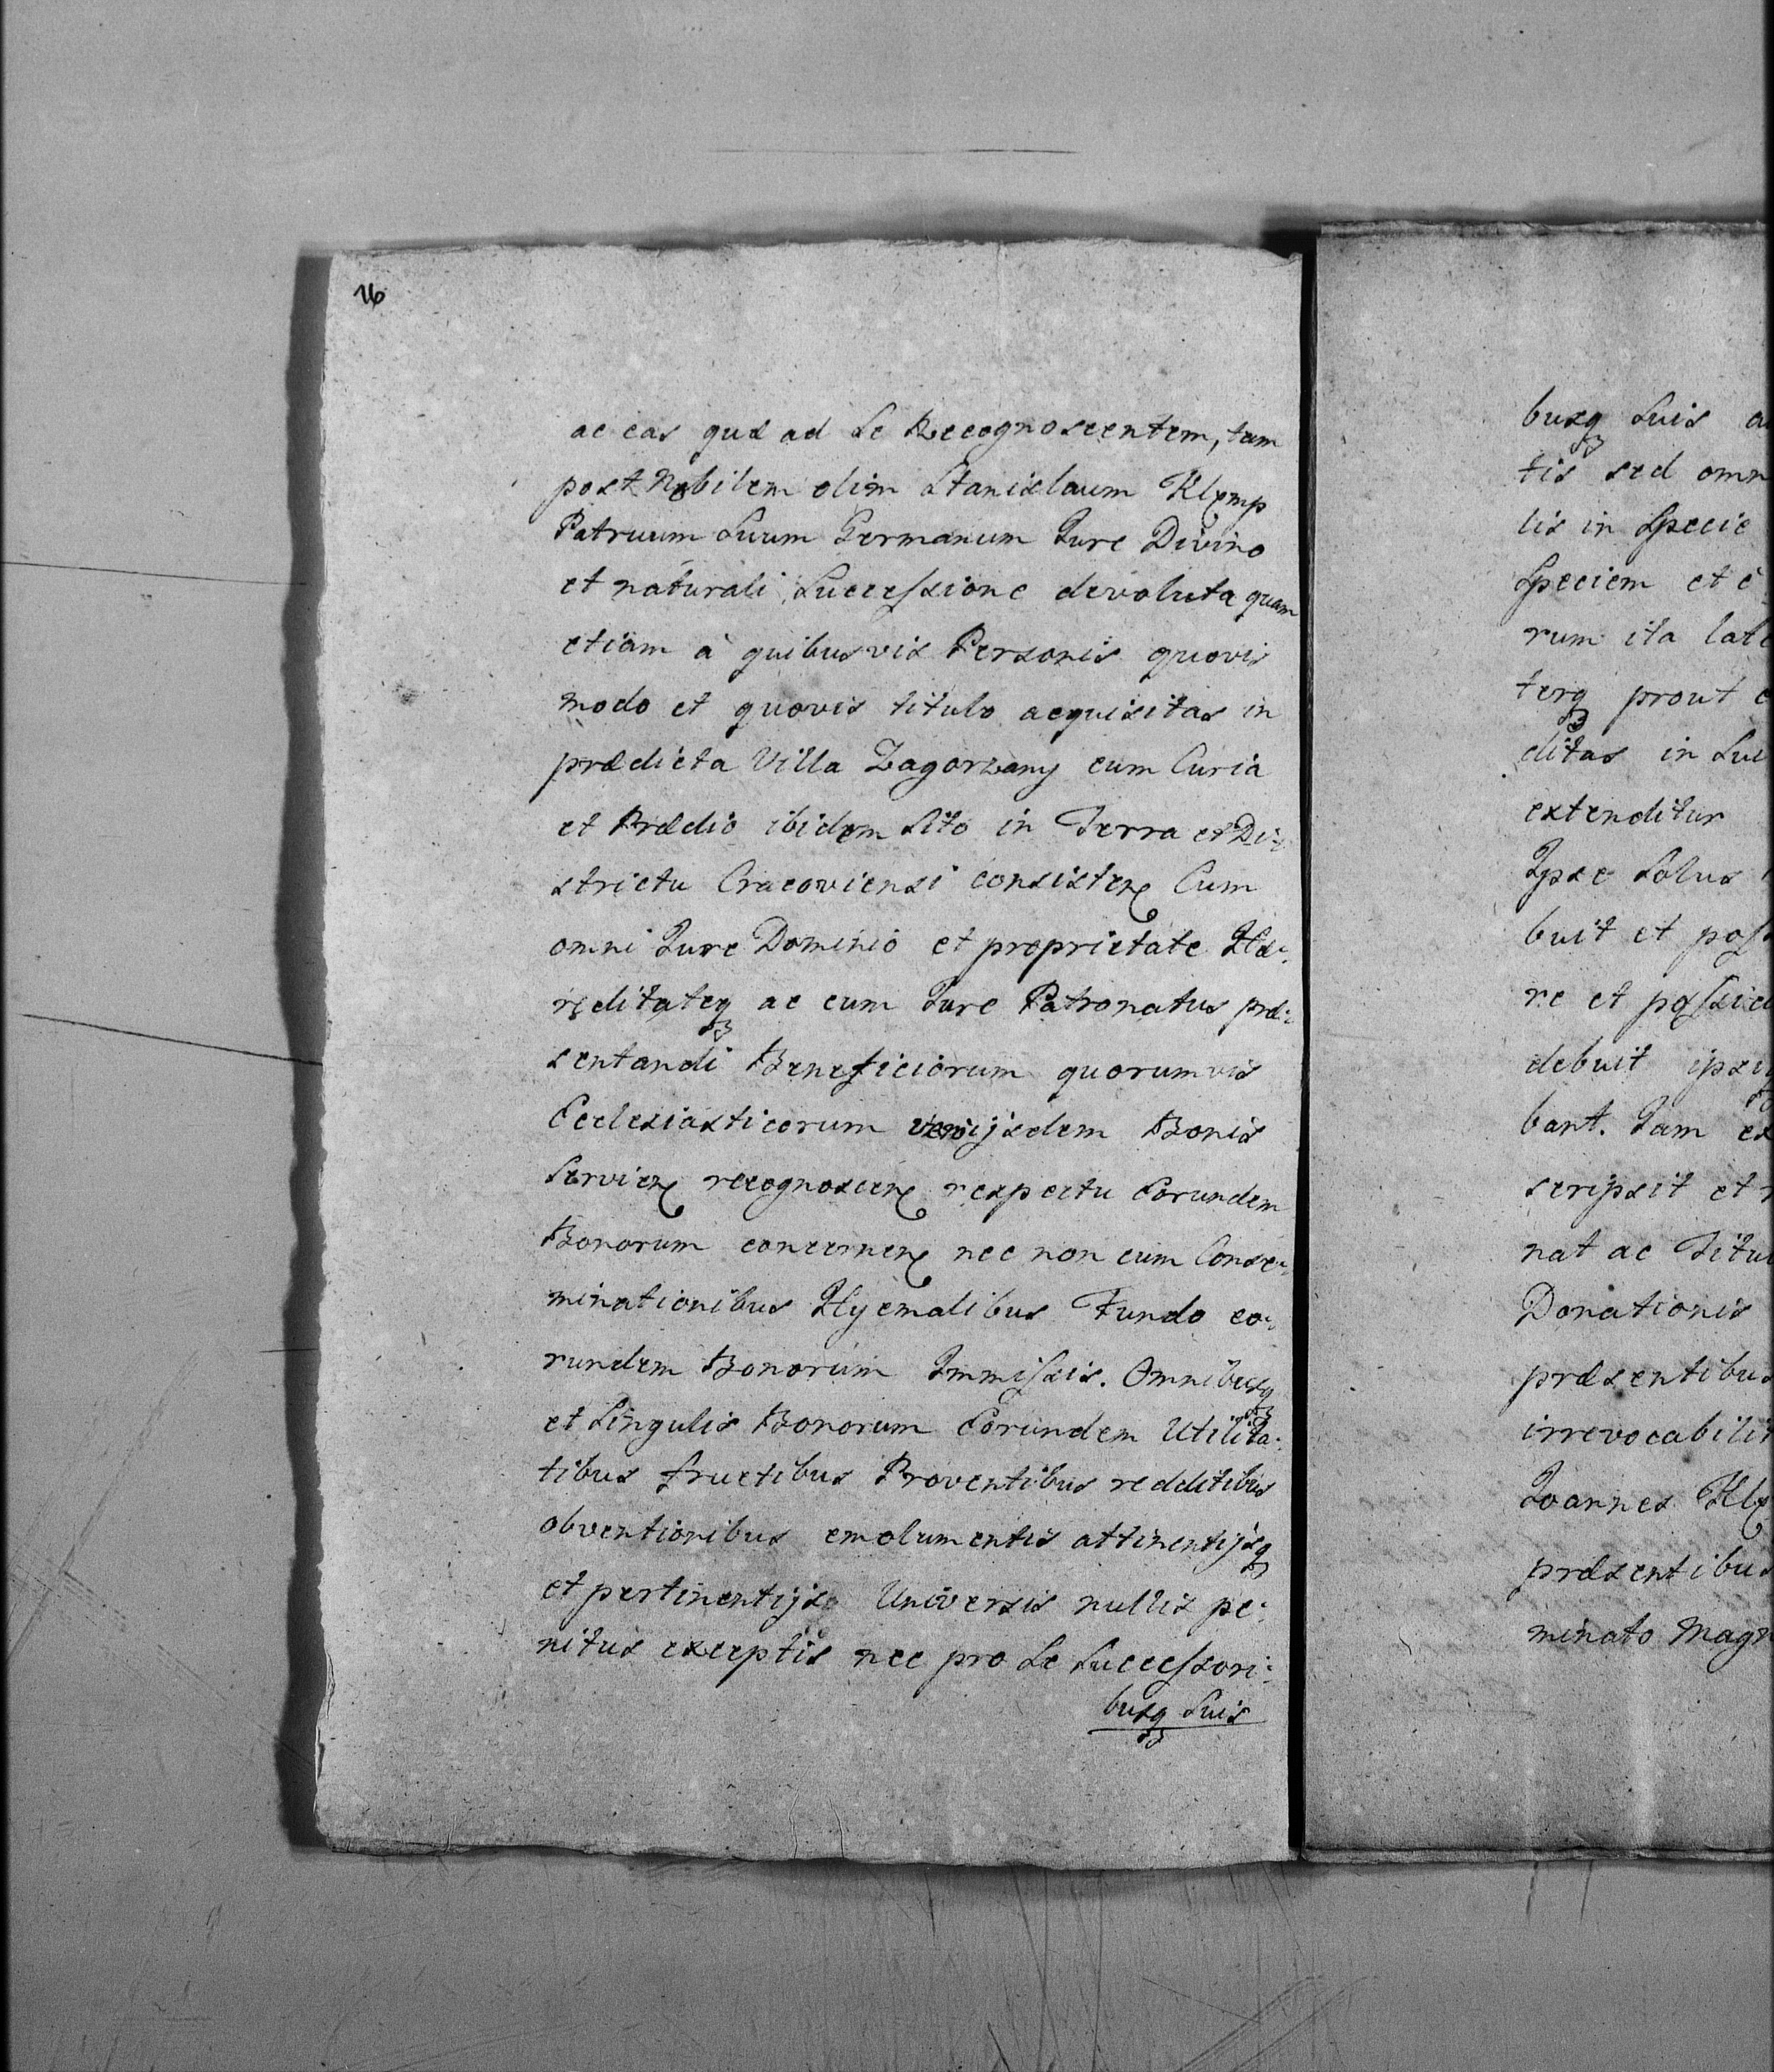 16
ac eas quæ ad Se Recognoscentem, tam
post Nobilem olim Stanislaum Klemp
Patruum Suum Germanum Jure Divino
et naturali Successione devoluta quam
etiam à quibusvis Personis quovis
modo et quovis titulo acquisitas in
prædicta Villa Zagorzany cum Curia
et Prædio ibidem Sito in Terra et Di-
strictu Cracoviensi consisten Cum
omni Jure Dominio et proprietate Hæ-
reditateq ac cum Jure Patronatus præ-
sentandi Beneficiorum quorumvis
Ecclesiasticorum ijsdem Bonis
Servien recognoscen respectu Eorundem
Bonorum concernen nec non cum Conse-
minationibus Hyemalibus Fundo eo-
rundem Bonorum Immissis. Omnibusq
et Singulis Bonorum Eorundem Utilita-
tibus fructibus Proventibus redditibus
obventionibus emolumentis attinentijsq
et pertinentijs Universis nullis pe-
nitus exceptis nec pro Se Successori-
busq Suis
busq Suis
tis sed
lis in Specie
Speciem et
rum ita
terq prout
ditas in
extenditur
Ipse Solus
buit et
re et
debuit
bant. Jam
scripsit et
nat ac
Donationis
præsentibus
Joannes
minato